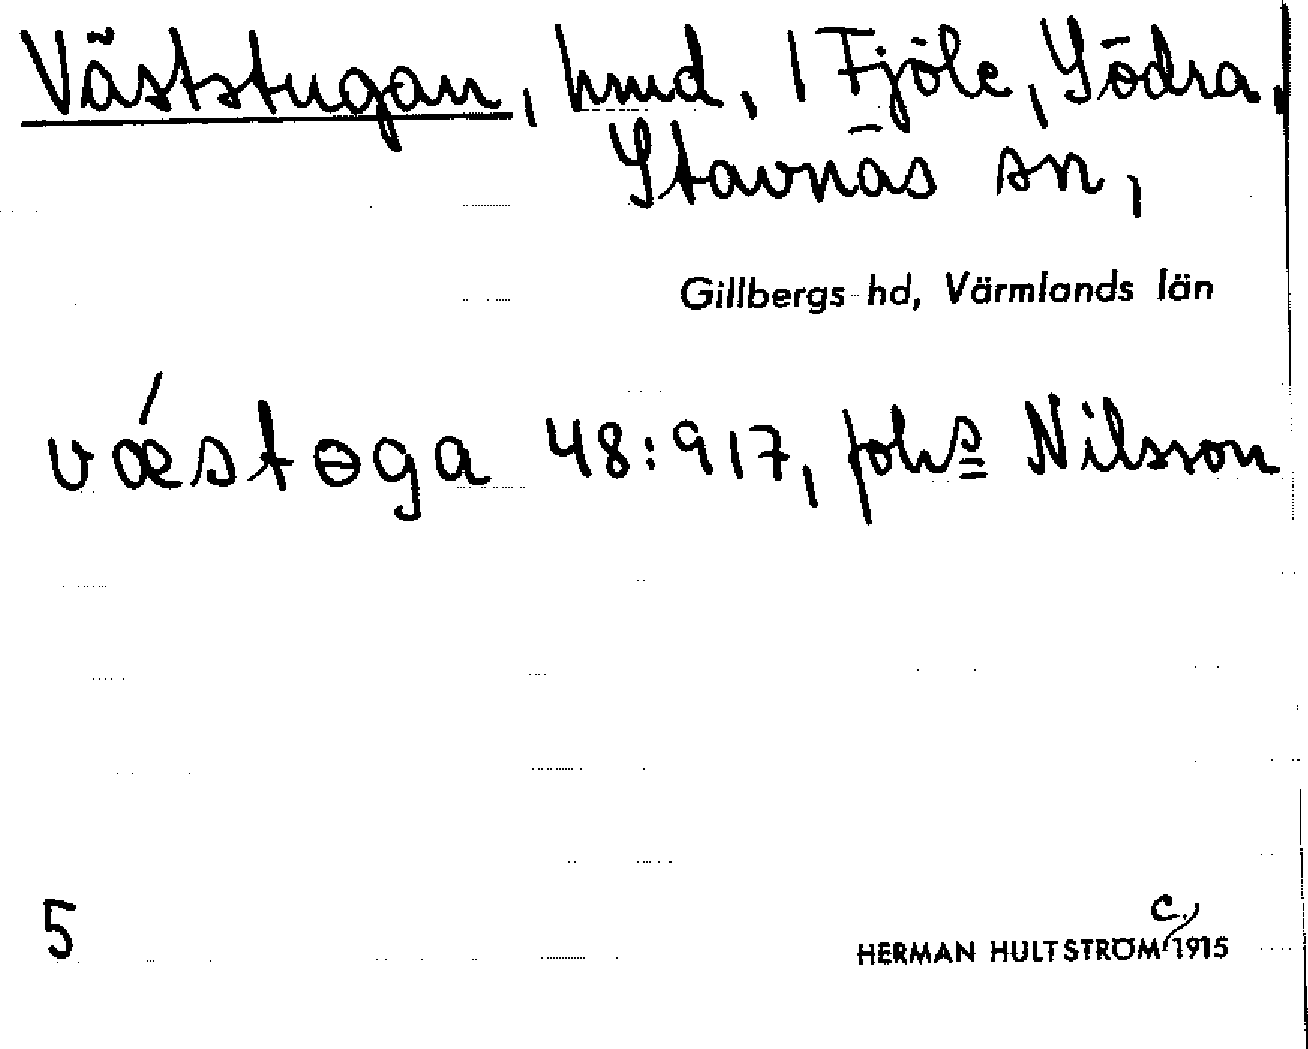 Väststugan, hmd, i Fjöle, Södra,
Stavnäs sn,
Gillbergs hd, Värmlands län
vǽstɵga 48:917, Johs Nilsson
5
HERMAN HULTSTRÖM c. 1915